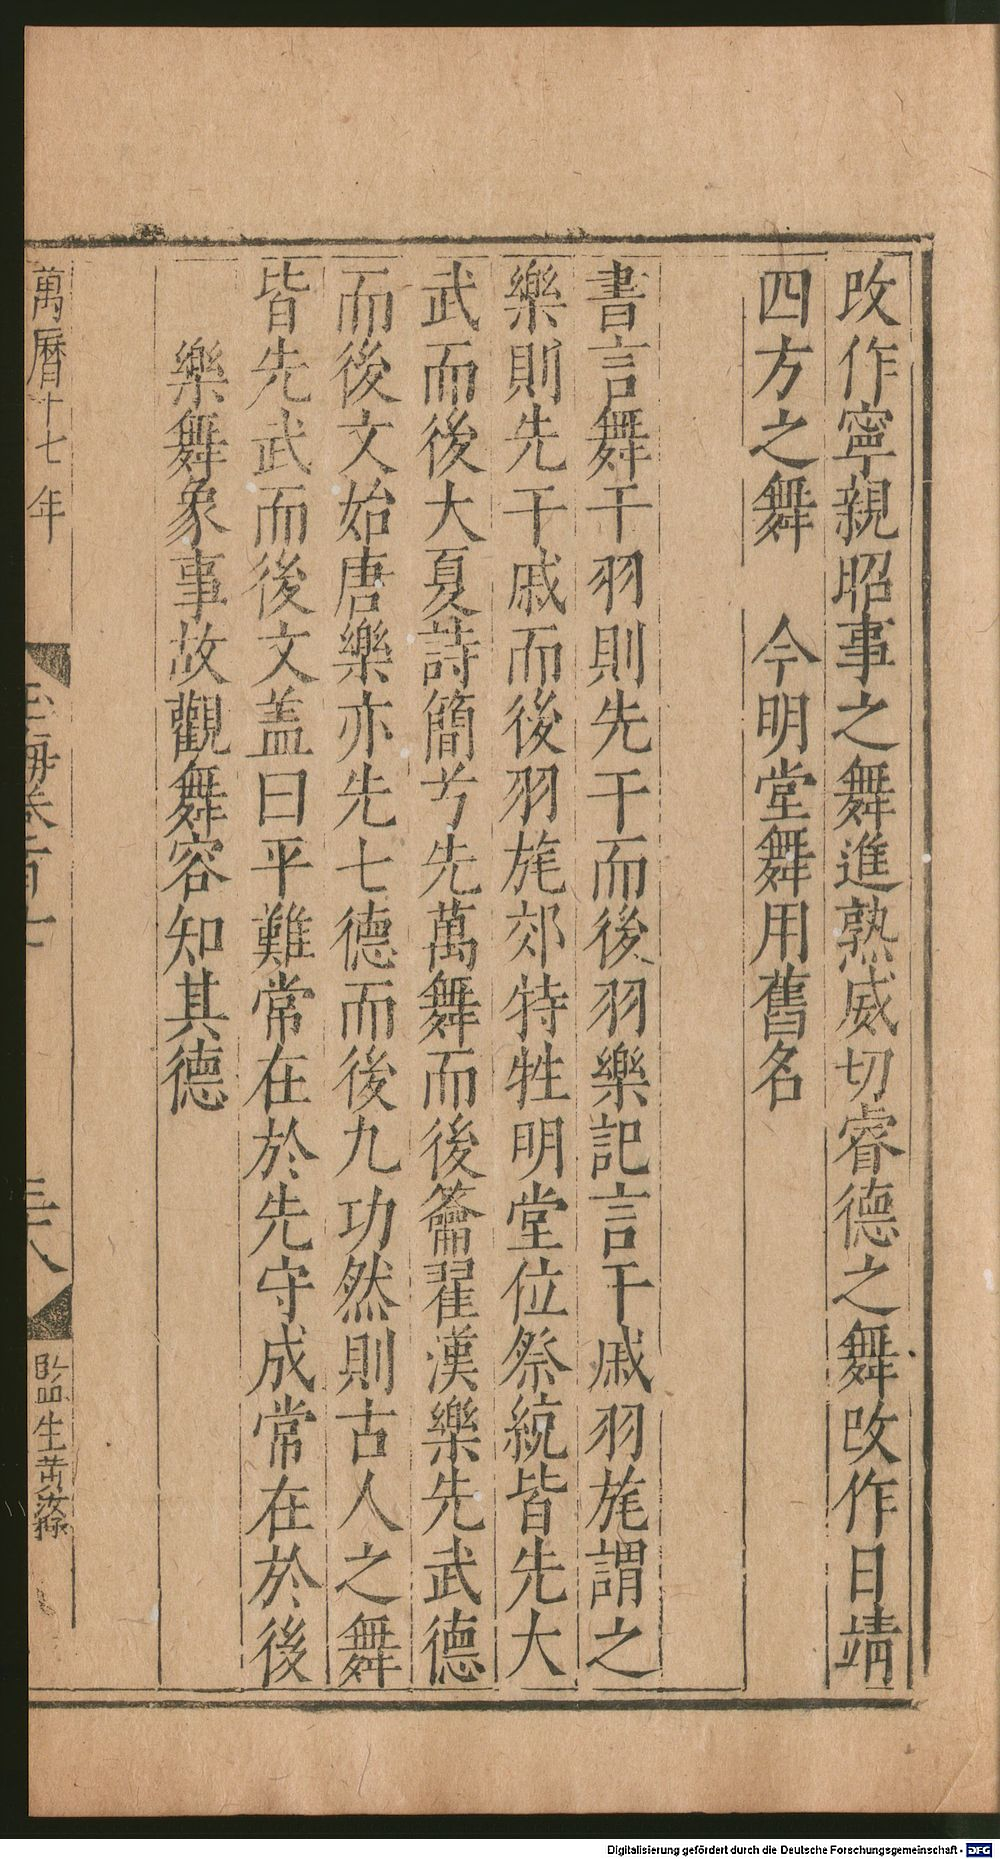 改作寧親昭事之舞進熟威切睿德之舞改作日靖
四方之舞　今明堂舞用舊名
書言舞干羽則先干而後羽樂記言干戚羽旄謂之
樂則先干戚而後羽旄郊特牲明堂位祭統皆先大
武而後大夏詩簡兮先萬舞而後籥翟漢樂先武德
而後文始唐樂亦先七德而後九功然則古人之舞
皆先武而後文盖曰平難常在於先守成常在於後
樂舞象事故觀舞容知其德
萬曆十七年
玉海卷百七
三八
監生黄
Digitalisierung gefördert durch die Deutsche Forschungsgemeinschaft - DFG